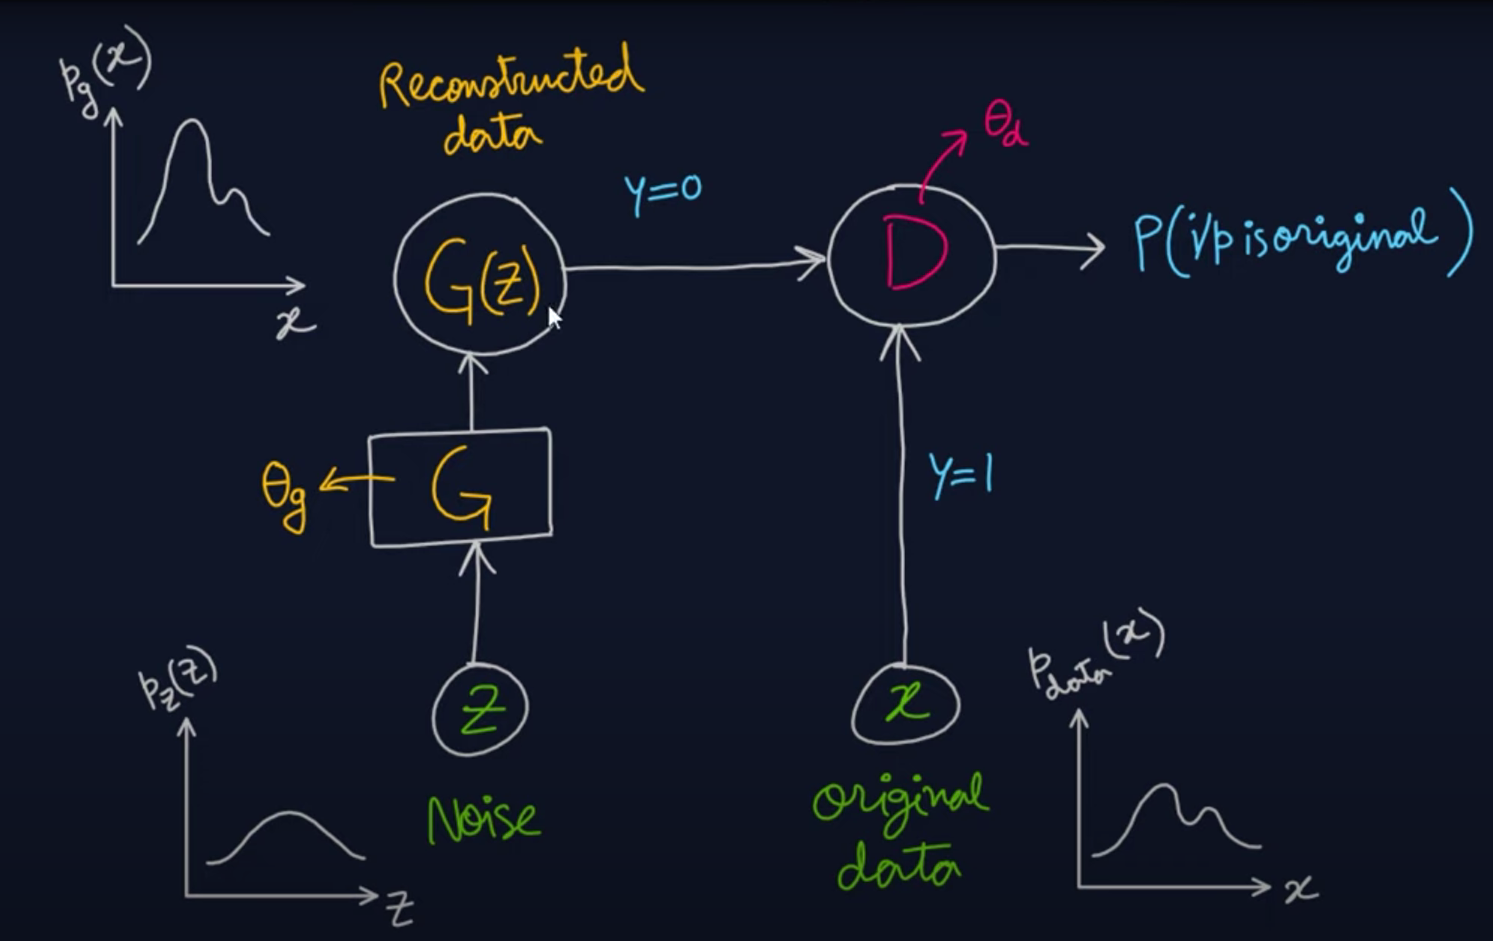 p_g(x)
Reconstructed
data
θ_d
Y=0
G(z)
D
P(i/p is original)
x
θ_g
G
Y=1
p_z(z)
z
Noise
z
x
original
data
p_data(x)
x